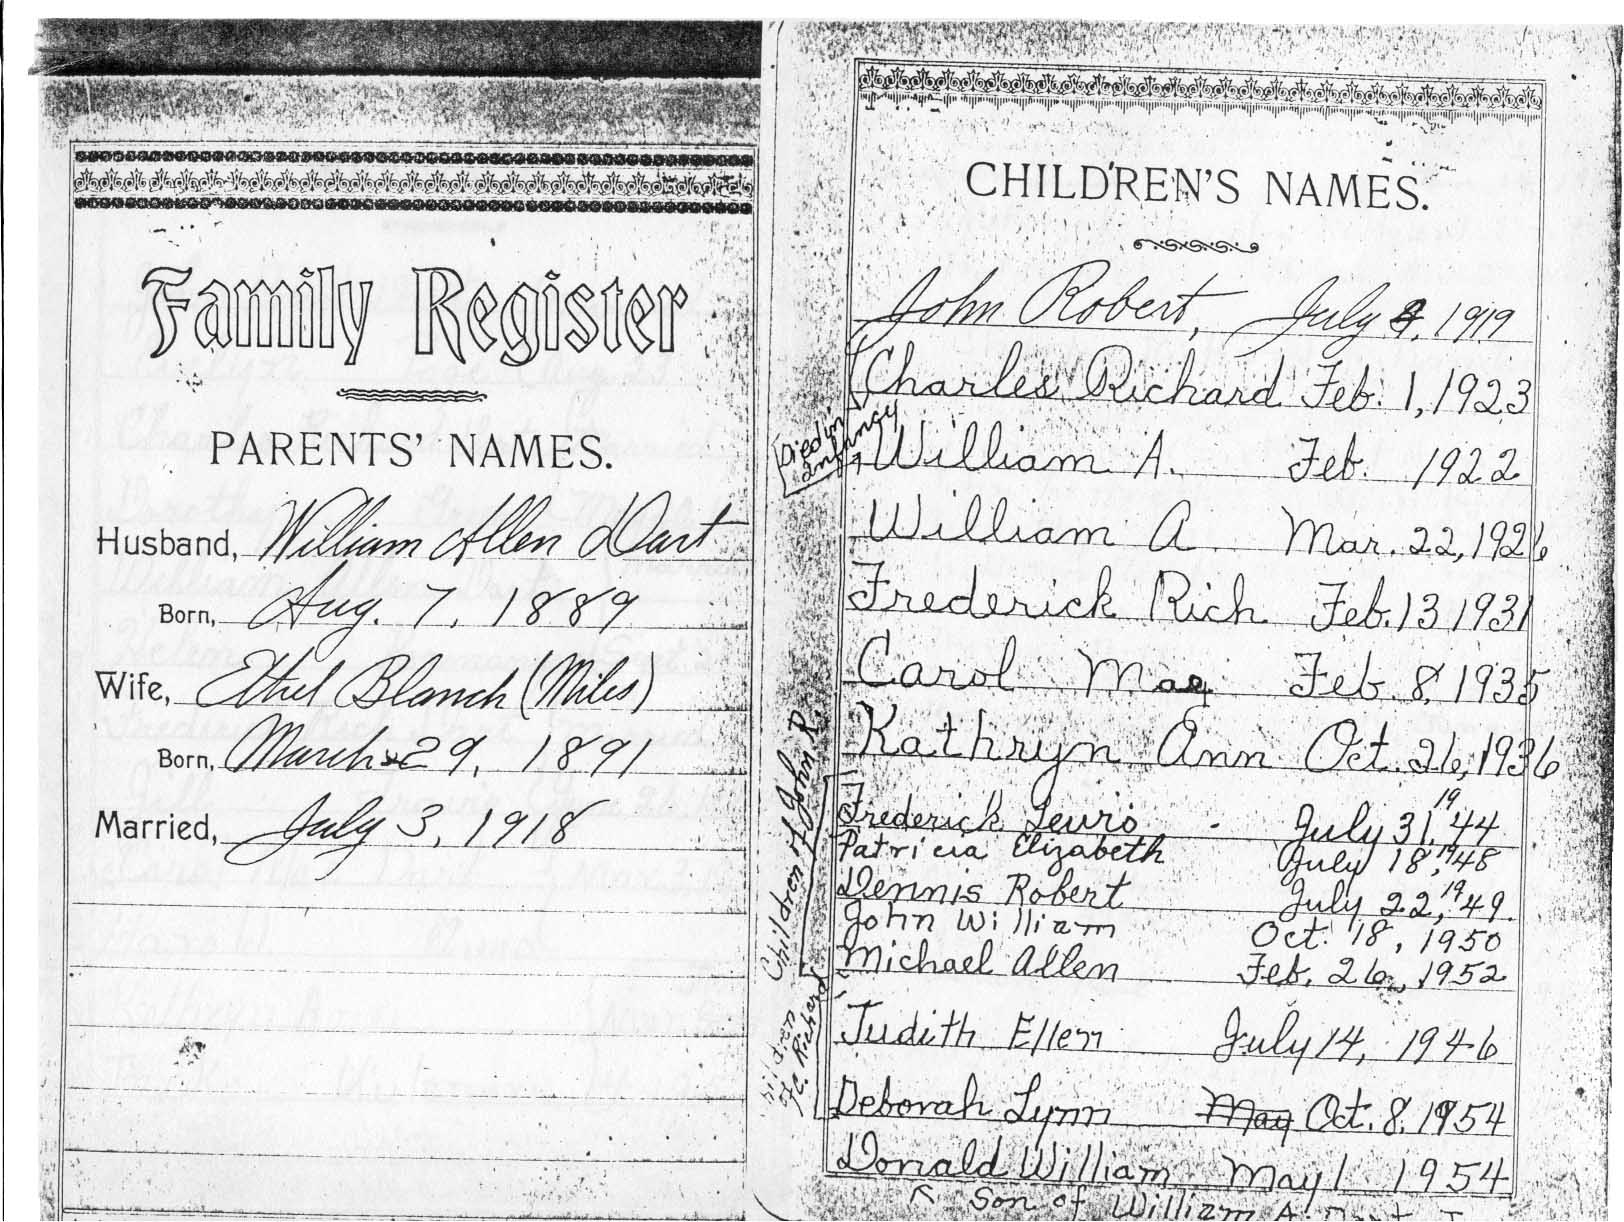 Family Register
PARENTS' NAMES.
Husband, William Allen Dart
Born, Aug. 7, 1889
Wife, Ethel Blanch (Miles)
Born, March 29, 1891
Married, July 3, 1918
CHILDREN'S NAMES.
John Robert, July 9, 1919
Charles Richard Feb. 1, 1923
Died in
infancy
William A. Feb. 1922
William A Mar. 22, 1926
Frederick Rich Feb. 13 1931
Carol May Feb. 8, 1935
Kathryn Ann Oct. 26, 1936
Children of John R.
Frederick Lewis July 31, 1944
Patricia Elizabeth July 18, 1948
Dennis Robert July 22, 1949.
John William Oct. 18, 1950
Michael Allen Feb. 26, 1952
hildren
of C. Richard
Judith Ellen July 14, 1946
Deborah Lynn May Oct. 8, 1954
Donald William May 1 1954
Son of William A. Dart